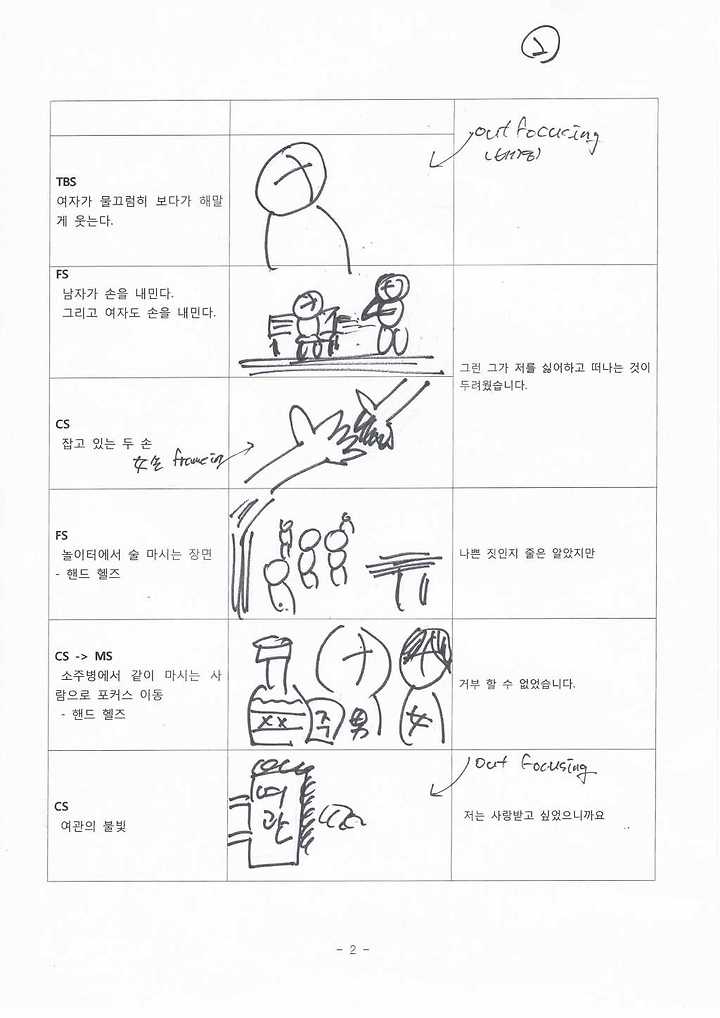 2
out focusing
(배경)
TBS
여자가 물끄럼히 보다가 해말
게 웃는다.
FS
남자가 손을 내민다.
그리고 여자도 손을 내민다.
그런 그가 저를 싫어하고 떠나는 것이
두려웠습니다.
CS
잡고 있는 두 손
女손 framing
FS
놀이터에서 술 마시는 장면
- 핸드 헬즈
나쁜 짓인지 줄은 알았지만
CS -> MS
소주병에서 같이 마시는 사
람으로 포커스 이동
- 핸드 헬즈
XX
주
男
女
거부 할 수 없었습니다.
out focusing
CS
여관의 불빛
여
관
저는 사랑받고 싶었으니까요
- 2 -